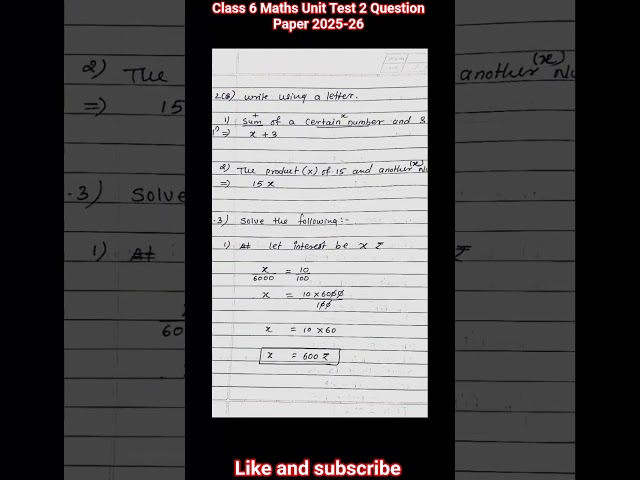 Class 6 Maths Unit Test 2 Question
Paper 2025-26
2(B) write using a letter.
1) Sum of a certain number and 3
+ x
⇒ x + 3
2) The product (x) of 15 and another (x) Nu
⇒ 15 x
.3) Solve the following:-
1) let interest be x ₹
x/6000 = 10/100
x = 10 × 6000/100
x = 10 × 60
x = 600 ₹
Like and subscribe